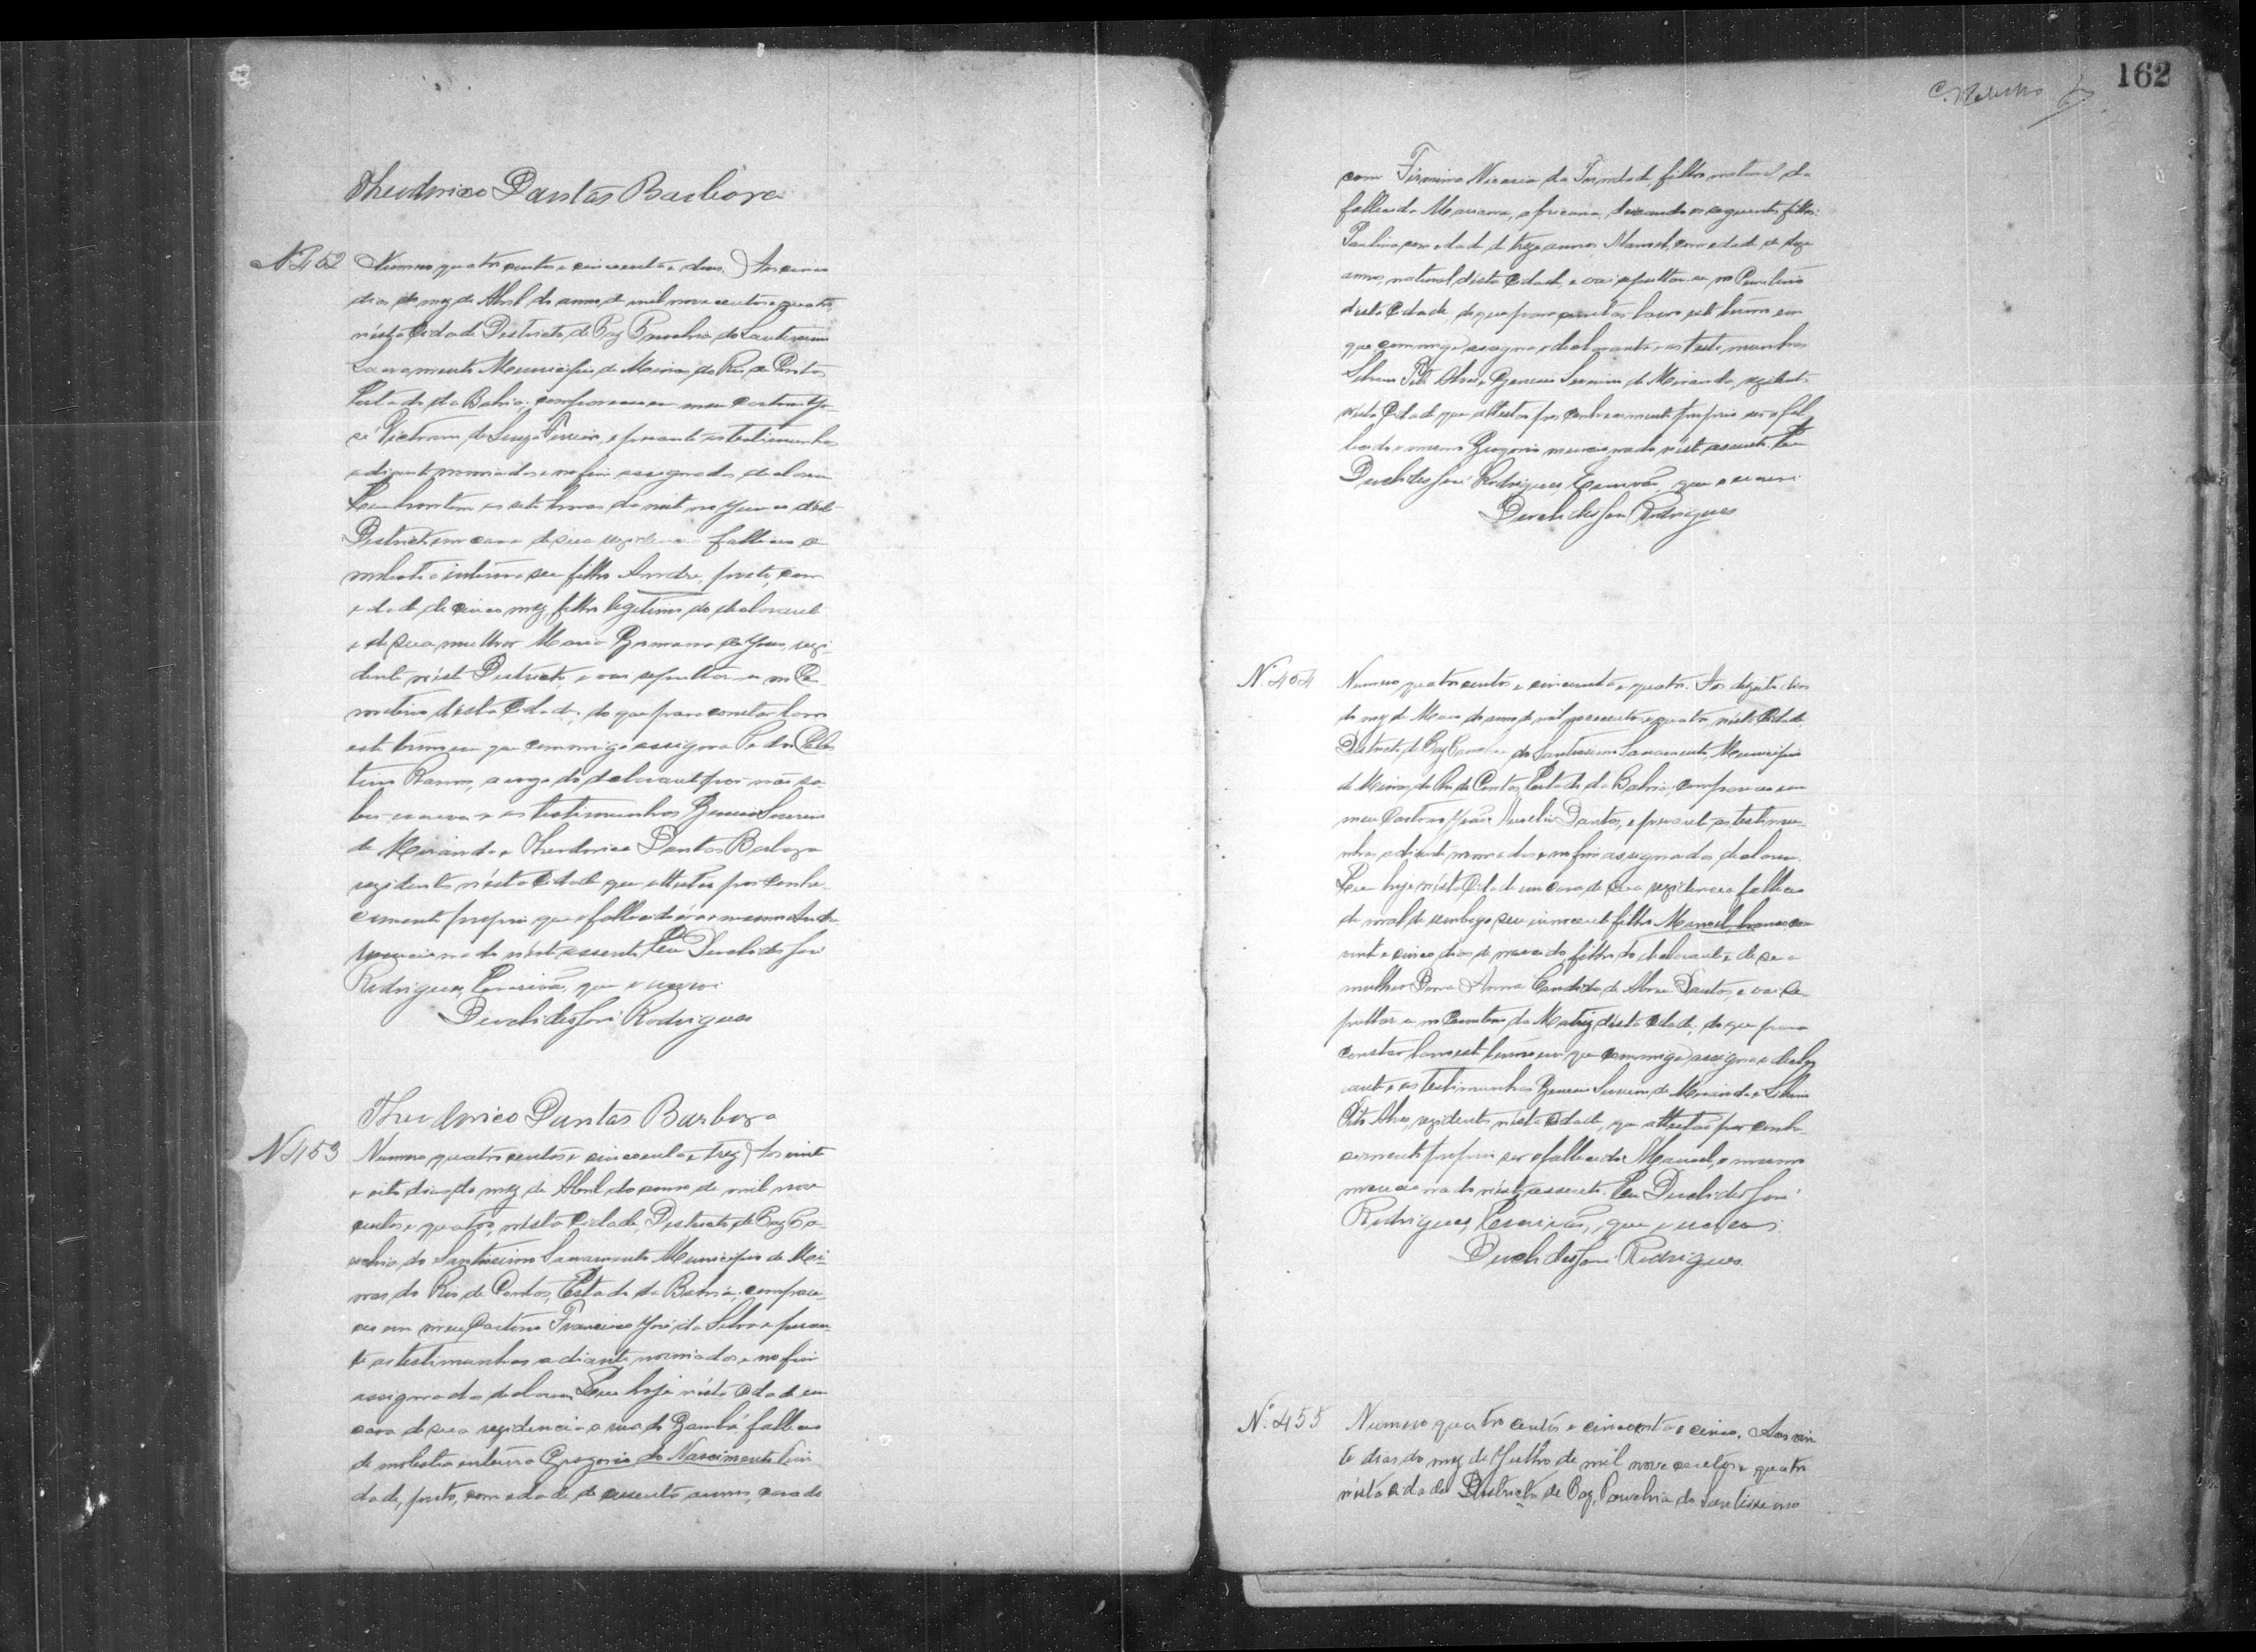 Theodorico Dantas Barbosa
Nº 452 Numero quatro centos e cincoenta e dous. Aos cinco
dias do mez de Abril do anno de mil nove centos e quatro,
nésta Cidade Districto de Paz Parochia do Santissimo
Sacramento Municipio de Minas do Rio de Contas
Estado da Bahia; compareceu em meu Cartorio Jo-
sé Victorino de Souza e perante as testimunhas
adiante nomiadas e no fim assignadas declarou
Que hontem as sete horas da noite no déste
Districto em casa de sua rezidencia falleceu de
molestia interna seu filho Andre, preto, com
edade de cinco mez, filho legitimo do declarante
e de sua mulher Maria de Jesus, rezi-
dente nést Districto e vai sepultar-se no Ce-
miterio désta Cidade, do que para constar lavro
este termo em que commigo assigna Pedro
Ramos, a rogo do declarante por não sa-
ber escrever e as testimunhas
de Miranda e Theodorico Dantas Barboza
rezidentes nésta Cidade que attestão por conhe-
cimento proprio que o fallecido éra o mesmo André
mencionado néste assento. Eu Durchides José
Rodrigues, Escrivão, que o escrevi.
Durchides José Rodrigues
Theodorico Dantas Barboza
Nº 453 Numero quatro centos e cincoenta e trez. Aos vinte
e oito dias do mez de Abril do anno de mil nove
centos e quatro, nésta Cidade, Districto de Paz Pa-
rochia do Santissimo Sacramento Municipio de Mi-
nas do Rio de Contas, Estado da Bahia; compare-
ceu em meu Cartorio Francisco José da Silva e peran-
te as testimunhas adiante nomiadas e no fim
assignadas declarou Que hoje nésta Cidade em
casa de sua rezidencia a rua do falleceu
de molestia interna Gregorio do Nascimento Trin-
dade, preto, com edade de sessenta annos, casado
162
com Firmina da Trindade, filho natural da
fallecida Marianna, africana, deixando os seguintes filhos:
Paulina com edade de treze annos, Manoel, com edade de doze
annos, natural désta Cidade, e vai sepultar-se no Cemiterio
désta Cidade, do que para constar lavro este termo em
que commigo assigna o declarante e as testimunhas
Alves e de Miranda, rezidentes
nésta Cidade que attestão por conhecimento proprio ser o fal-
lecido o mesmo Gregorio mencionado néste assento. Eu
Durchides José Rodrigues, Escrivão, que o escrevi.
Durchides José Rodrigues
Nº 454 Numero quatro centos e cincoenta e quatro. Aos dezoito dias
do mez de Maio do anno de mil novecentos e quatro, nésta Cidade
Districto de Paz Parochia do Santissimo Sacramento, Municipio
de Minas do Rio de Contas, Estado da Bahia, compareceu em
meu Cartorio João Dantas, e perante as testimu-
nhas adiante nomiadas e no fim assignadas declarou.
Que hoje nésta Cidade em casa de sua rezidencia falleceu
de mal de umbigo seu innocente filho Manoel, branco com
vinte e cinco dias de nascido, filho do declarante e de sua
mulher Dona Anna Candida de Abreu Dantas, e vai se-
pultar-se no Cemiterio da Matriz désta Cidade, do que para
constar lavro este termo em que commigo assigna o decla-
rante e as testimunhas de Miranda e
Alves, rezidentes nésta Cidade, que attestão por conhe-
cimento proprio ser o fallecido Manoel, o mesmo
mencionado néste assento. Eu Durchides José
Rodrigues, Escrivão, que o escrevi.
Durchides José Rodrigues.
Nº 455 Numero quatro centos e cincoenta e cinco. Aos vin
te dias do mez de Julho de mil nove centos e quatro
nésta cidade Districto de Paz, Parochia do Santissimo